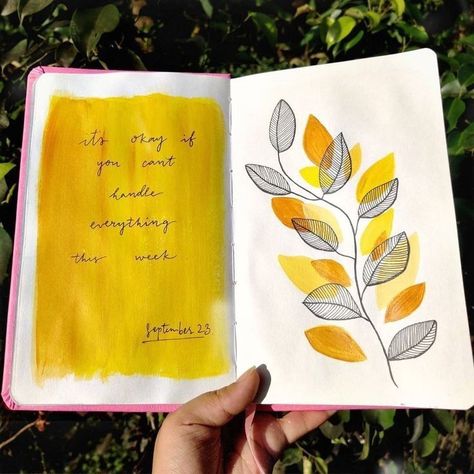 its okay if
you cant
handle
everything
this week
September 23.